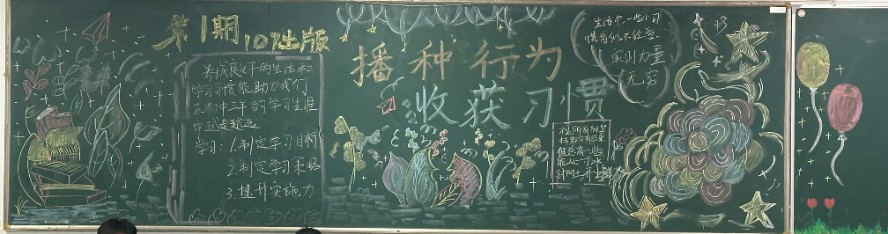 第1期
107出版
养成良好的生活和
学习习惯能助力我们
在初中三年的学习生涯
中越走越远
学习:1.制定学习目标
2.制定学习
3.提升实施力
播种行为
收获习惯
生活中一些小习
惯看似不经意
实则力量
无穷